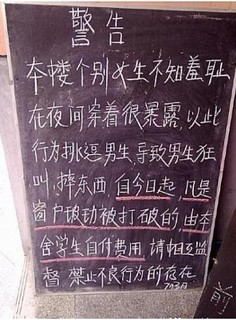 警告
本楼个别女生不知羞耻
在夜间穿着很暴露,以此
行为挑逗男生,导致男生狂
叫,摔东西,自今日起,凡是
窗户玻璃被打破的,由本
舍学生自付费用,请相互监
督,禁止不良行为的存在